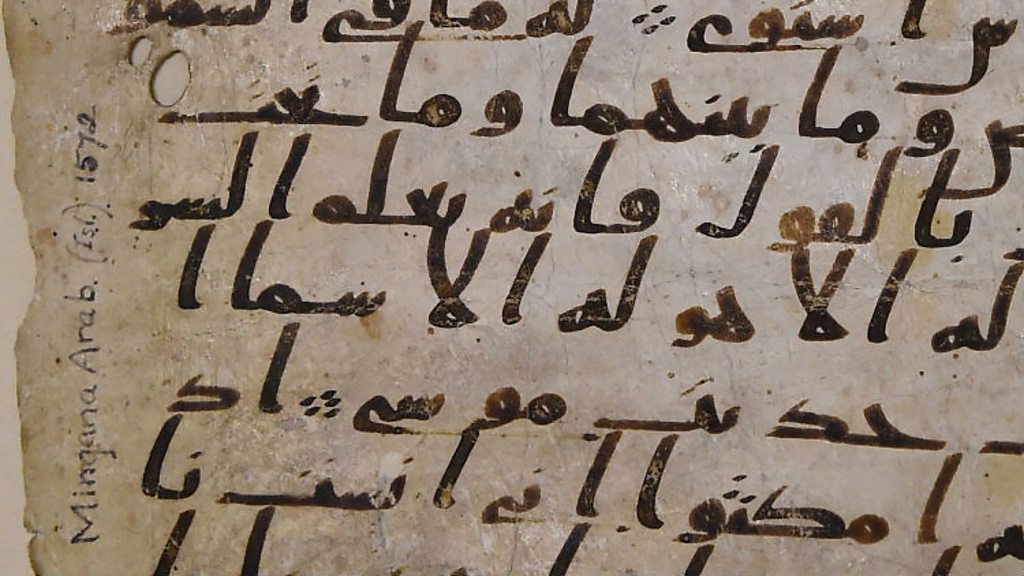 س استوى له ما في السمو
ض وما بينهما وما تحت
بالقول فانه يعلم السر
له الا هو له الاسما ا
حديث موسى اذ
امكثوا اني انست نا
Mingana Arab. (Isl.) 1572